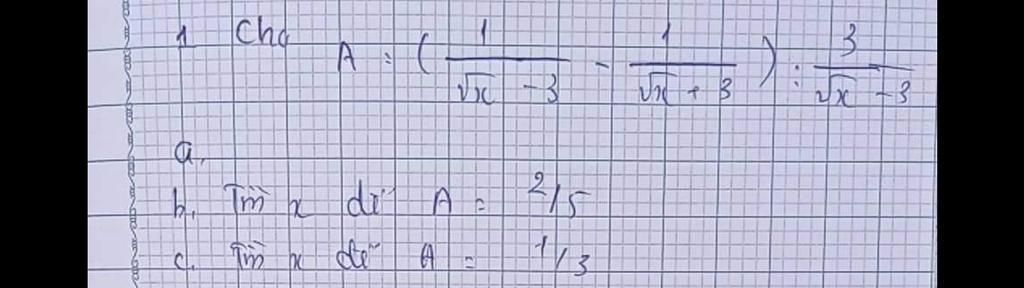 1 Cho A = ( 1/(√x - 3) - 1/(√x + 3) ) : 3/(√x - 3)
a.
b. Tìm x để A = 2/5
c. Tìm x để A = 1/3